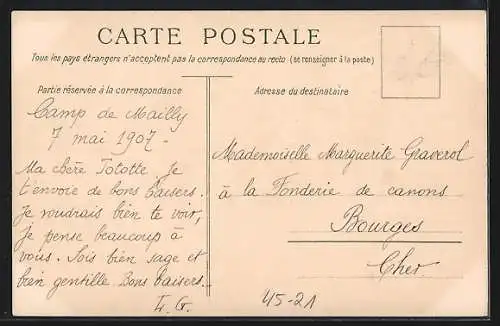 CARTE POSTALE
Tous les pays étrangers n'acceptent pas la correspondance au recto (se renseigner à la poste)
Partie réservée à la correspondance
Adresse du destinataire
Camp de Mailly
7 mai 1907 -
Ma chère Tototte. Je
t'envoie de bons baisers.
Je voudrais bien te voir,
je pense beaucoup à
vous. Sois bien sage et
bien gentille. Bons baisers.
L. G.
Mademoiselle Marguerite Graverol
à la Fonderie de canons
Bourges
Cher
45-21